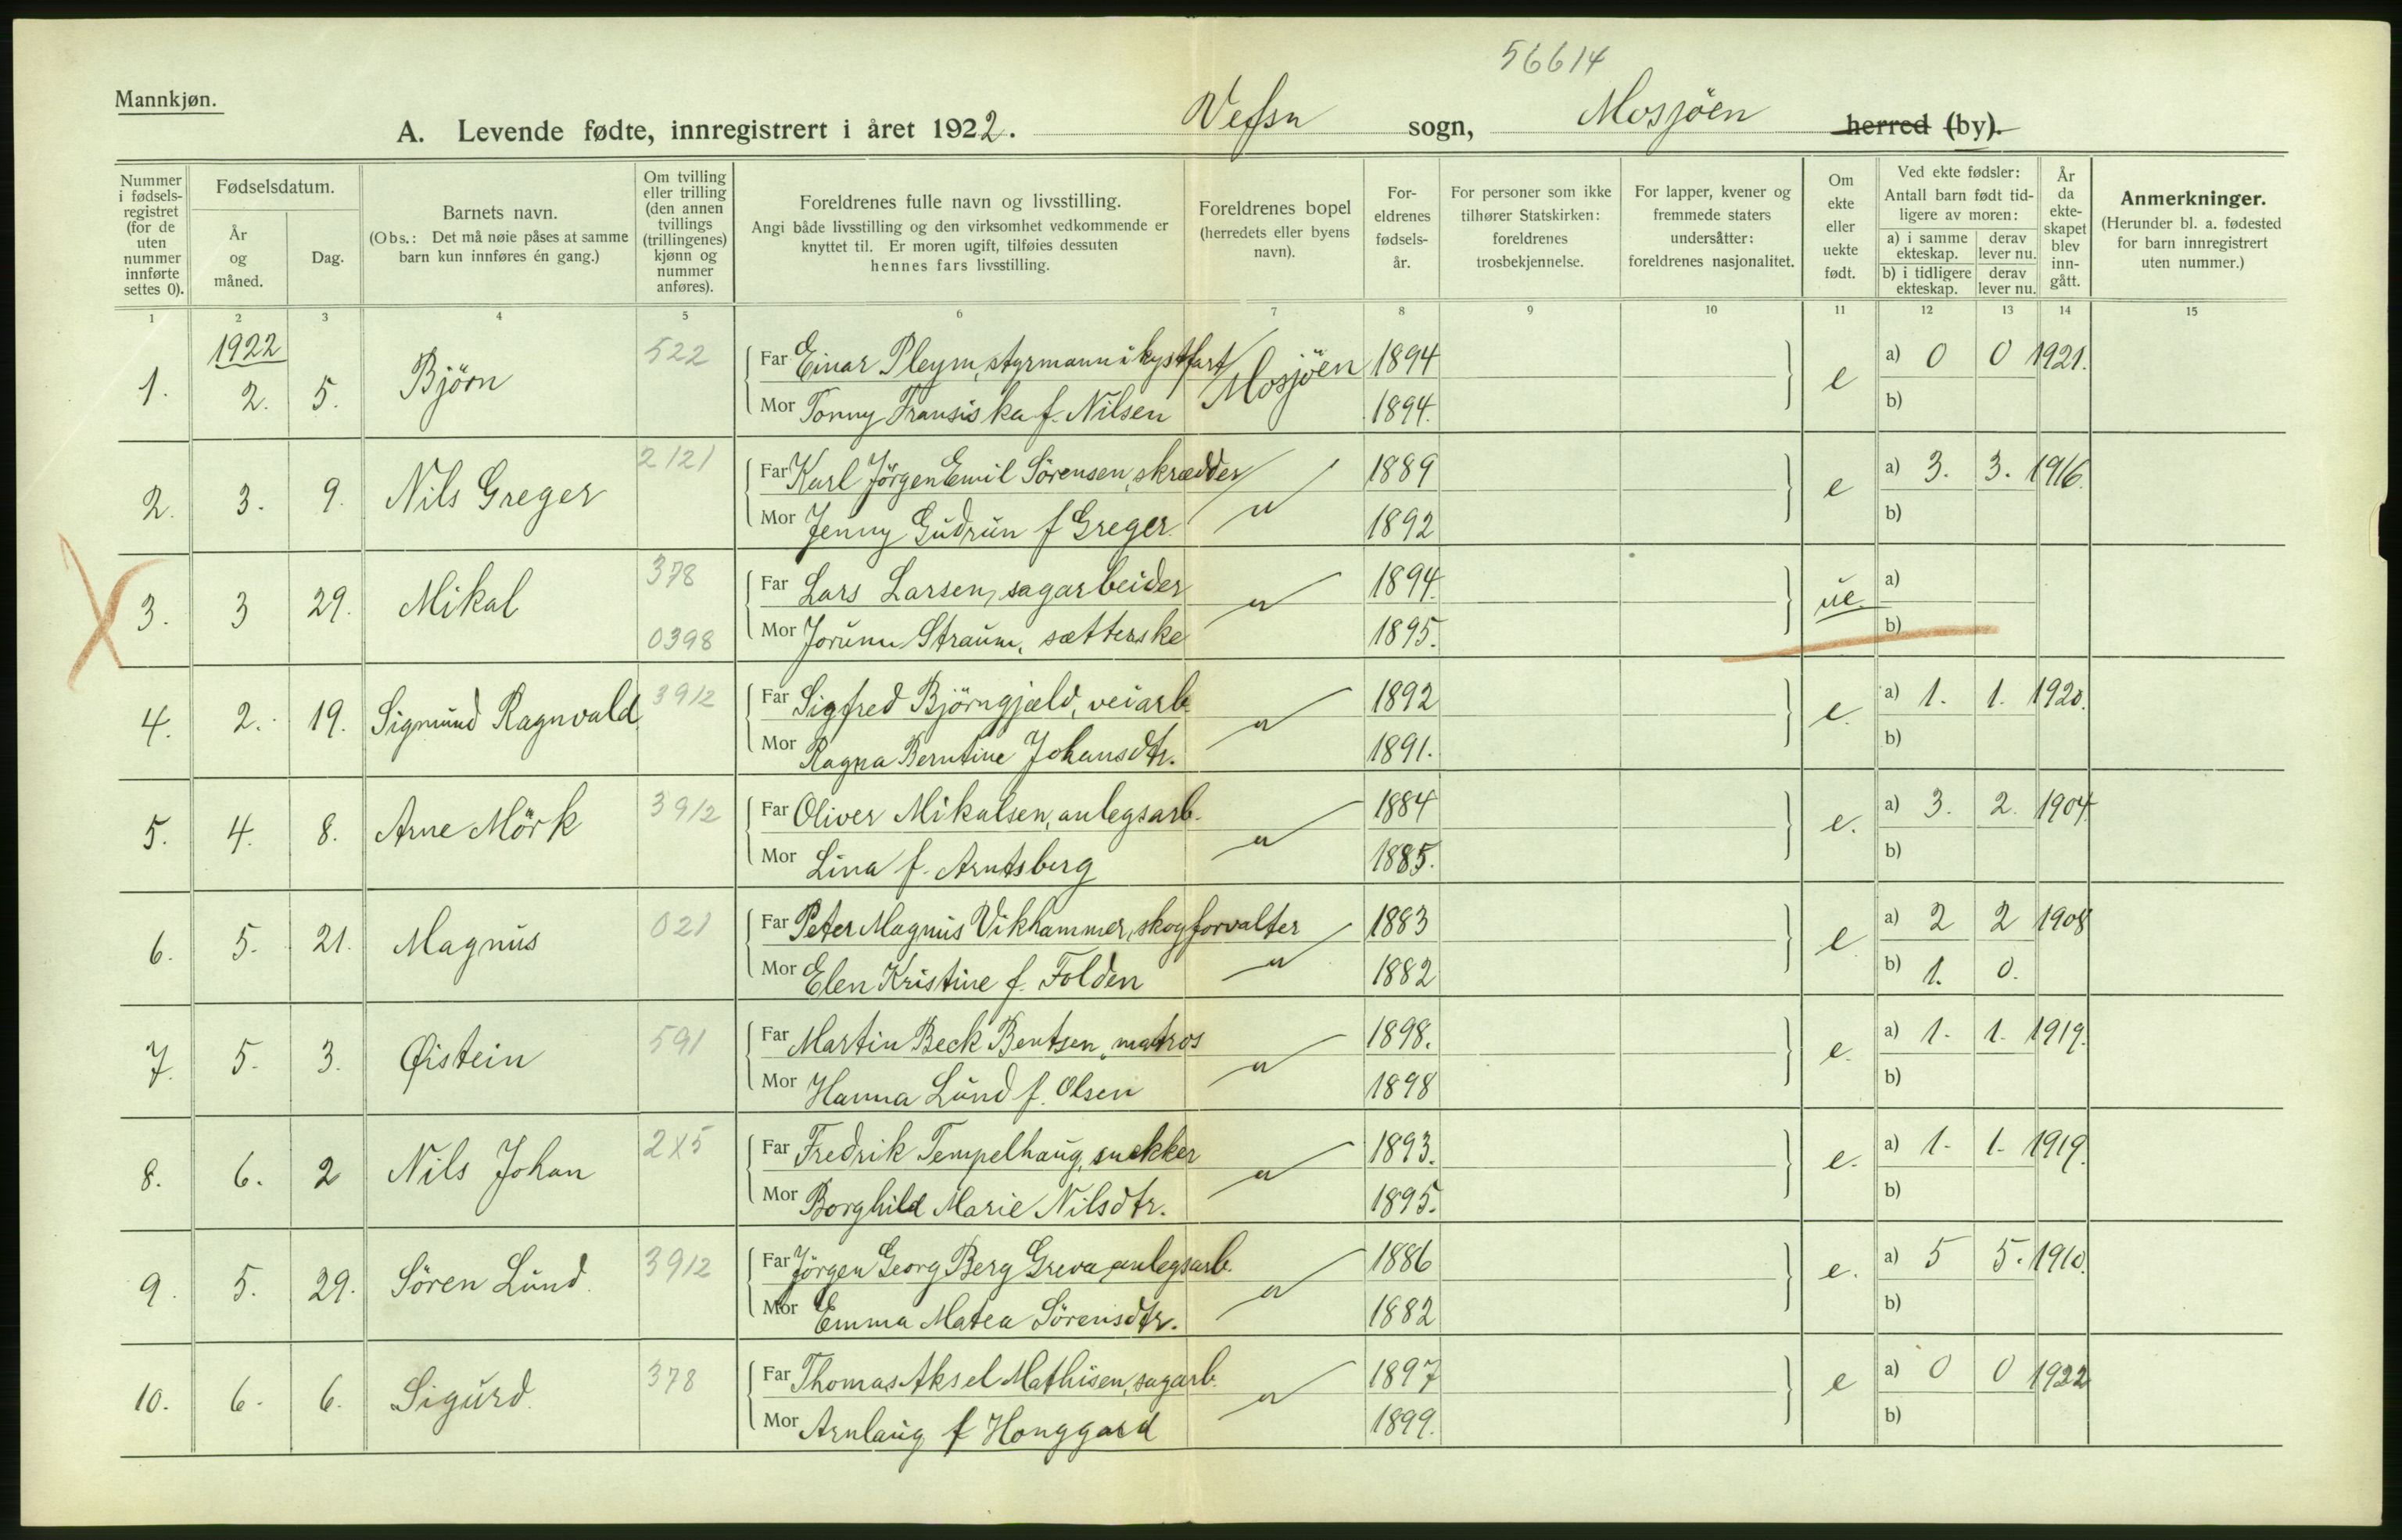 56614
Mannkjøn.
A. Levende fødte, innregistrert i året 1922. Vefsn sogn, Mosjöen herred (by).
Nummer i fødsels-registret (for de uten nummer innførte settes 0).
Fødselsdatum.
År og måned.
Dag.
Barnets navn.
(Obs.: Det må nøie påses at samme barn kun innføres én gang.)
Om tvilling eller trilling (den annen tvillings (trillingenes) kjønn og nummer anføres).
Foreldrenes fulle navn og livsstilling.
Angi både livsstilling og den virksomhet vedkommende er knyttet til. Er moren ugift, tilføies dessuten hennes fars livsstilling.
Foreldrenes bopel (herredets eller byens navn).
For-eldrenes fødsels-år.
For personer som ikke tilhører Statskirken: foreldrenes trosbekjennelse.
For lapper, kvener og fremmede staters undersåtter: foreldrenes nasjonalitet.
Om ekte eller uekte født.
Ved ekte fødsler: Antall barn født tid-ligere av moren:
a) i samme ekteskap. derav lever nu.
b) i tidligere ekteskap. derav lever nu.
År da ekte-skapet blev inn-gått.
Anmerkninger.
(Herunder bl. a. fødested for barn innregistrert uten nummer.)
1 2 3 4 5 6 7 8 9 10 11 12 13 14 15
1922
1. 2. 5. Björn 522 Far Einar Pleym, styrmann i kystfart Mosjöen 1894 e a) 0 0 1921.
Mor Tonny Fransiska f. Nilsen 1894. b)
2. 3. 9. Nils Greger 2121 Far Karl Jörgen Emil Sörensen, skrædder 1889 e a) 3. 3. 1916.
Mor Jenny Gudrun f Greger. " 1892 b)
3. 3 29. Mikal 378 Far Lars Larsen, sagarbeider " 1894. ue. a)
0398 Mor Jorunn Straum, sætterske 1895. b)
4. 2. 19. Sigmund Ragnvald 3912 Far Sigfred Björngjæld, veiarb. " 1892 e. a) 1. 1. 1920.
Mor Ragna Berntine Johansdtr. 1891. b)
5. 4. 8. Arne Mörk 3912 Far Oliver Mikalsen, anlegsarb. " 1884 e. a) 3. 2. 1904.
Mor Lina f. Arntsberg 1885. b)
6. 5. 21. Magnus 021 Far Peter Magnus Vikhammer, skogforvalter 1883 e. a) 2 2 1908
Mor Elen Kristine f. Folden " 1882 b) 1. 0.
7. 5. 3. Øistein 591 Far Martin Beck Bentsen, matros " 1898. e. a) 1. 1. 1919.
Mor Hanna Lund f. Olsen 1898 b)
8. 6. 2 Nils Johan 2X5 Far Fredrik Tempelhaug, snekker " 1893. e. a) 1. 1. 1919.
Mor Borghild Marie Nilsdtr. 1895. b)
9. 5. 29. Sören Lund 3912 Far Jörgen Georg Berg Greva anlegsarb. " 1886 e. a) 5 5. 1910.
Mor Emma Matea Sörensdtr. 1882 b)
10. 6. 6. Sigurd 378 Far Thomas Aksel Mathisen, sagarb. " 1897 e a) 0 0 1922
Mor Arnlaug f Honggard 1899. b)